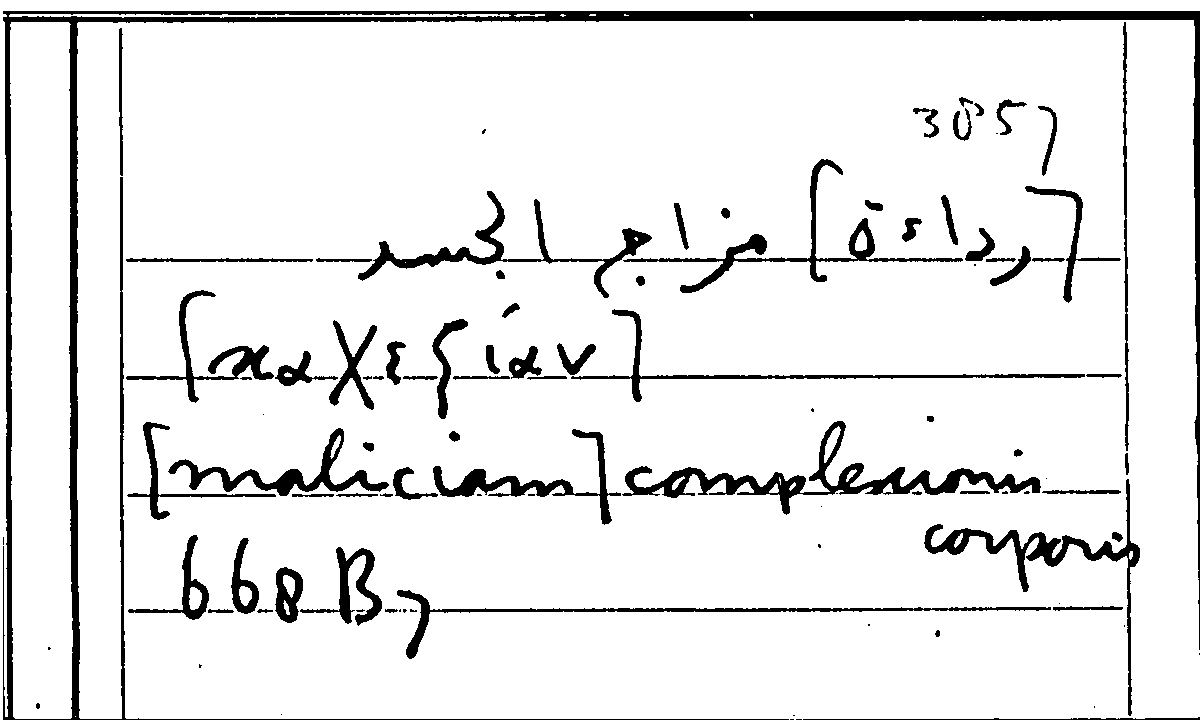 385 7
[رداءة] مزاج الجسد
[καχεξίαν]
[maliciam] complexionis
corporis
668 B 7